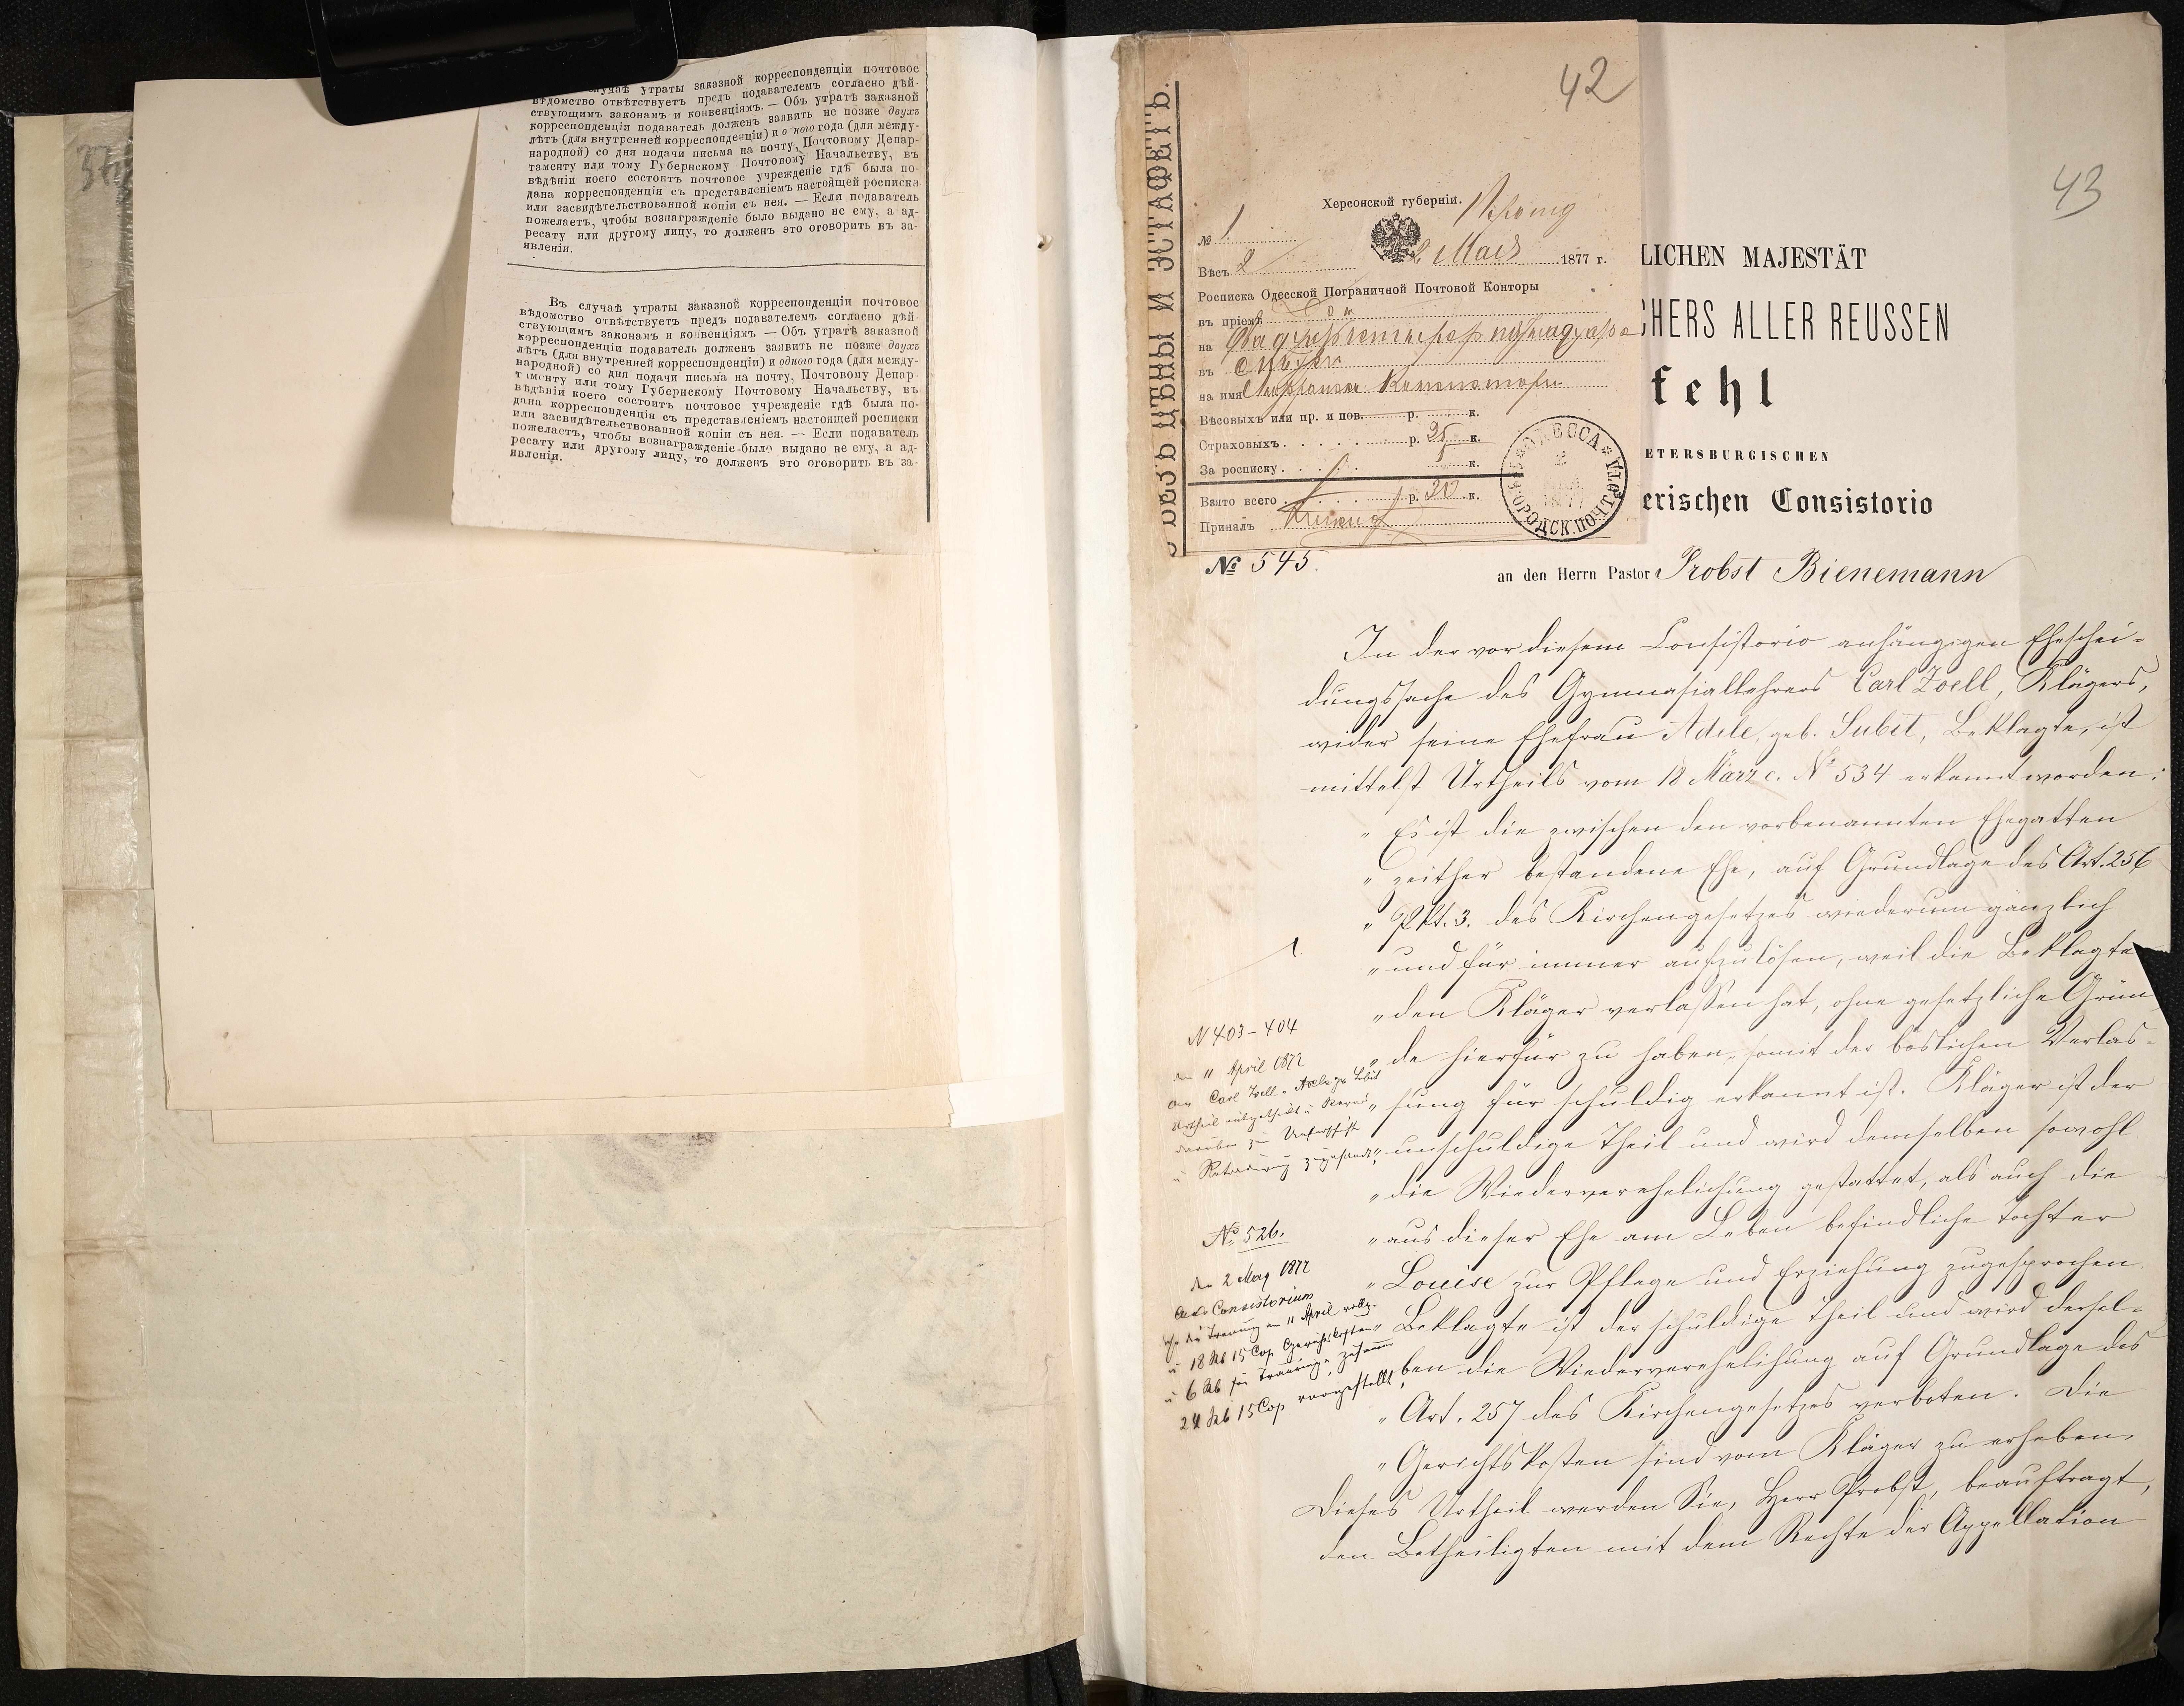 37
случаѣ утраты заказной корреспонденціи почтовое
вѣдомство отвѣтствуетъ предъ подавателемъ согласно дѣй-
ствующимъ законамъ и конвенціямъ. — Объ утратѣ заказной
корреспонденціи подаватель долженъ заявить не позже двухъ
лѣтъ (для внутренней корреспонденціи) и о ного года (для между-
народной) со дня подачи письма на почту, Почтовому Депар-
таменту или тому Губернскому Почтовому Начальству, въ
вѣдѣніи коего состоитъ почтовое учрежденіе гдѣ была по-
дана корреспонденція съ представленіемъ настоящей росписки
или засвидѣтельствованной копіи съ нея. — Если подаватель
пожелаетъ, чтобы вознагражденіе было выдано не ему, а ад-
ресату или другому лицу, то долженъ это оговорить въ за-
явленіи.
Въ случаѣ утраты заказной корреспонденціи почтовое
вѣдомство отвѣтствуетъ предъ подавателемъ согласно дѣй-
ствующимъ законамъ и конвенціямъ — Объ утратѣ заказной
корреспонденціи подаватель долженъ заявить не позже двухъ
лѣтъ (для внутренней корреспонденціи) и одного года (для между-
народной) со дня подачи письма на почту, Почтовому Депар-
таменту или тому Губернскому Почтовому Начальству, въ
вѣдѣніи коего состоитъ почтовое учрежденіе гдѣ была по-
дана корреспонденція съ представленіемъ настоящей росписки
или засвидѣтельствованной копіи съ нея. — Если подаватель
пожелаетъ, чтобы вознагражденіе было выдано не ему, а ад-
ресату или другому лицу, то долженъ это оговорить въ за-
явленіи.
БЕЗЪ ЦѢНЫ И ЭСТАФЕТЪ.
42
Херсонской губерніи.
№ 1
2 Мая 1877 г.
Вѣсъ 2
Росписка Одесской Пограничной Почтовой Конторы
въ пріемѣ
на
въ
на имя
Вѣсовыхъ или пр. и пов. р. к.
Страховыхъ р. 25 к.
За росписку 5 к.
Взято всего р. 30 к.
Принялъ
ОДЕССА
ГОРОДСК. ПОЧТА
43
LICHEN MAJESTÄT
CHERS ALLER REUSSEN
fehl
ETERSBURGISCHEN
erischen Consistorio
№ 545.
an den Herrn Pastor Probst Bienemann
In der vor diesem Consistorio anhängigen Eheschei-
dungssache des Gymnasiallehrers Carl Zoell, Klägers,
wider seine Ehefrau Adele, geb. Subit, Beklagte, ist
mittelst Urtheils vom 18 März c. № 534 erkannt worden:
" Es ist die zwischen den vorbenannten Ehegatten
" zeither bestandene Ehe, auf Grundlage des Art. 256
" Pkt. 3. des Kirchengesetzes wiederum gänzlich
" und für immer aufzulösen, weil die Beklagte
" den Kläger verlassen hat, ohne gesetzliche Grün
" de hierfür zu haben, somit der böslichen Verlas-
" sung für schuldig erkannt ist. Kläger ist der
" unschuldige Theil und wird demselben sowohl
" die Wiederverehelichung gestattet, als auch die
" aus dieser Ehe am Leben befindliche Tochter
" Louise zur Pflege und Erziehung zugesprochen.
" Beklagte ist der schuldige Theil und wird dersel-
" ben die Wiederverehelihung auf Grundlage des
" Art. 257 des Kirchengesetzes verboten. Die
" Gerichtskosten sind vom Kläger zu erheben.
Dieses Urtheil werden Sie, Herr Probst, beauftragt,
den Betheiligten mit dem Rechte der Appellation
N 403-404
den 11 April 1877
an Carl Zoell u. Adele geb. Subit
Urtheil mitgetheilt u.
darüber zur Unterschrift
u
№ 526.
den 2 May 1877
ans Consistorium
die Trennung am 11 April vollz.
u 18 Rb 15 Cop Gerichtskosten
u 6 Rb für Trauringe, zusammen
24 Rb 15 Cop vorgestellt